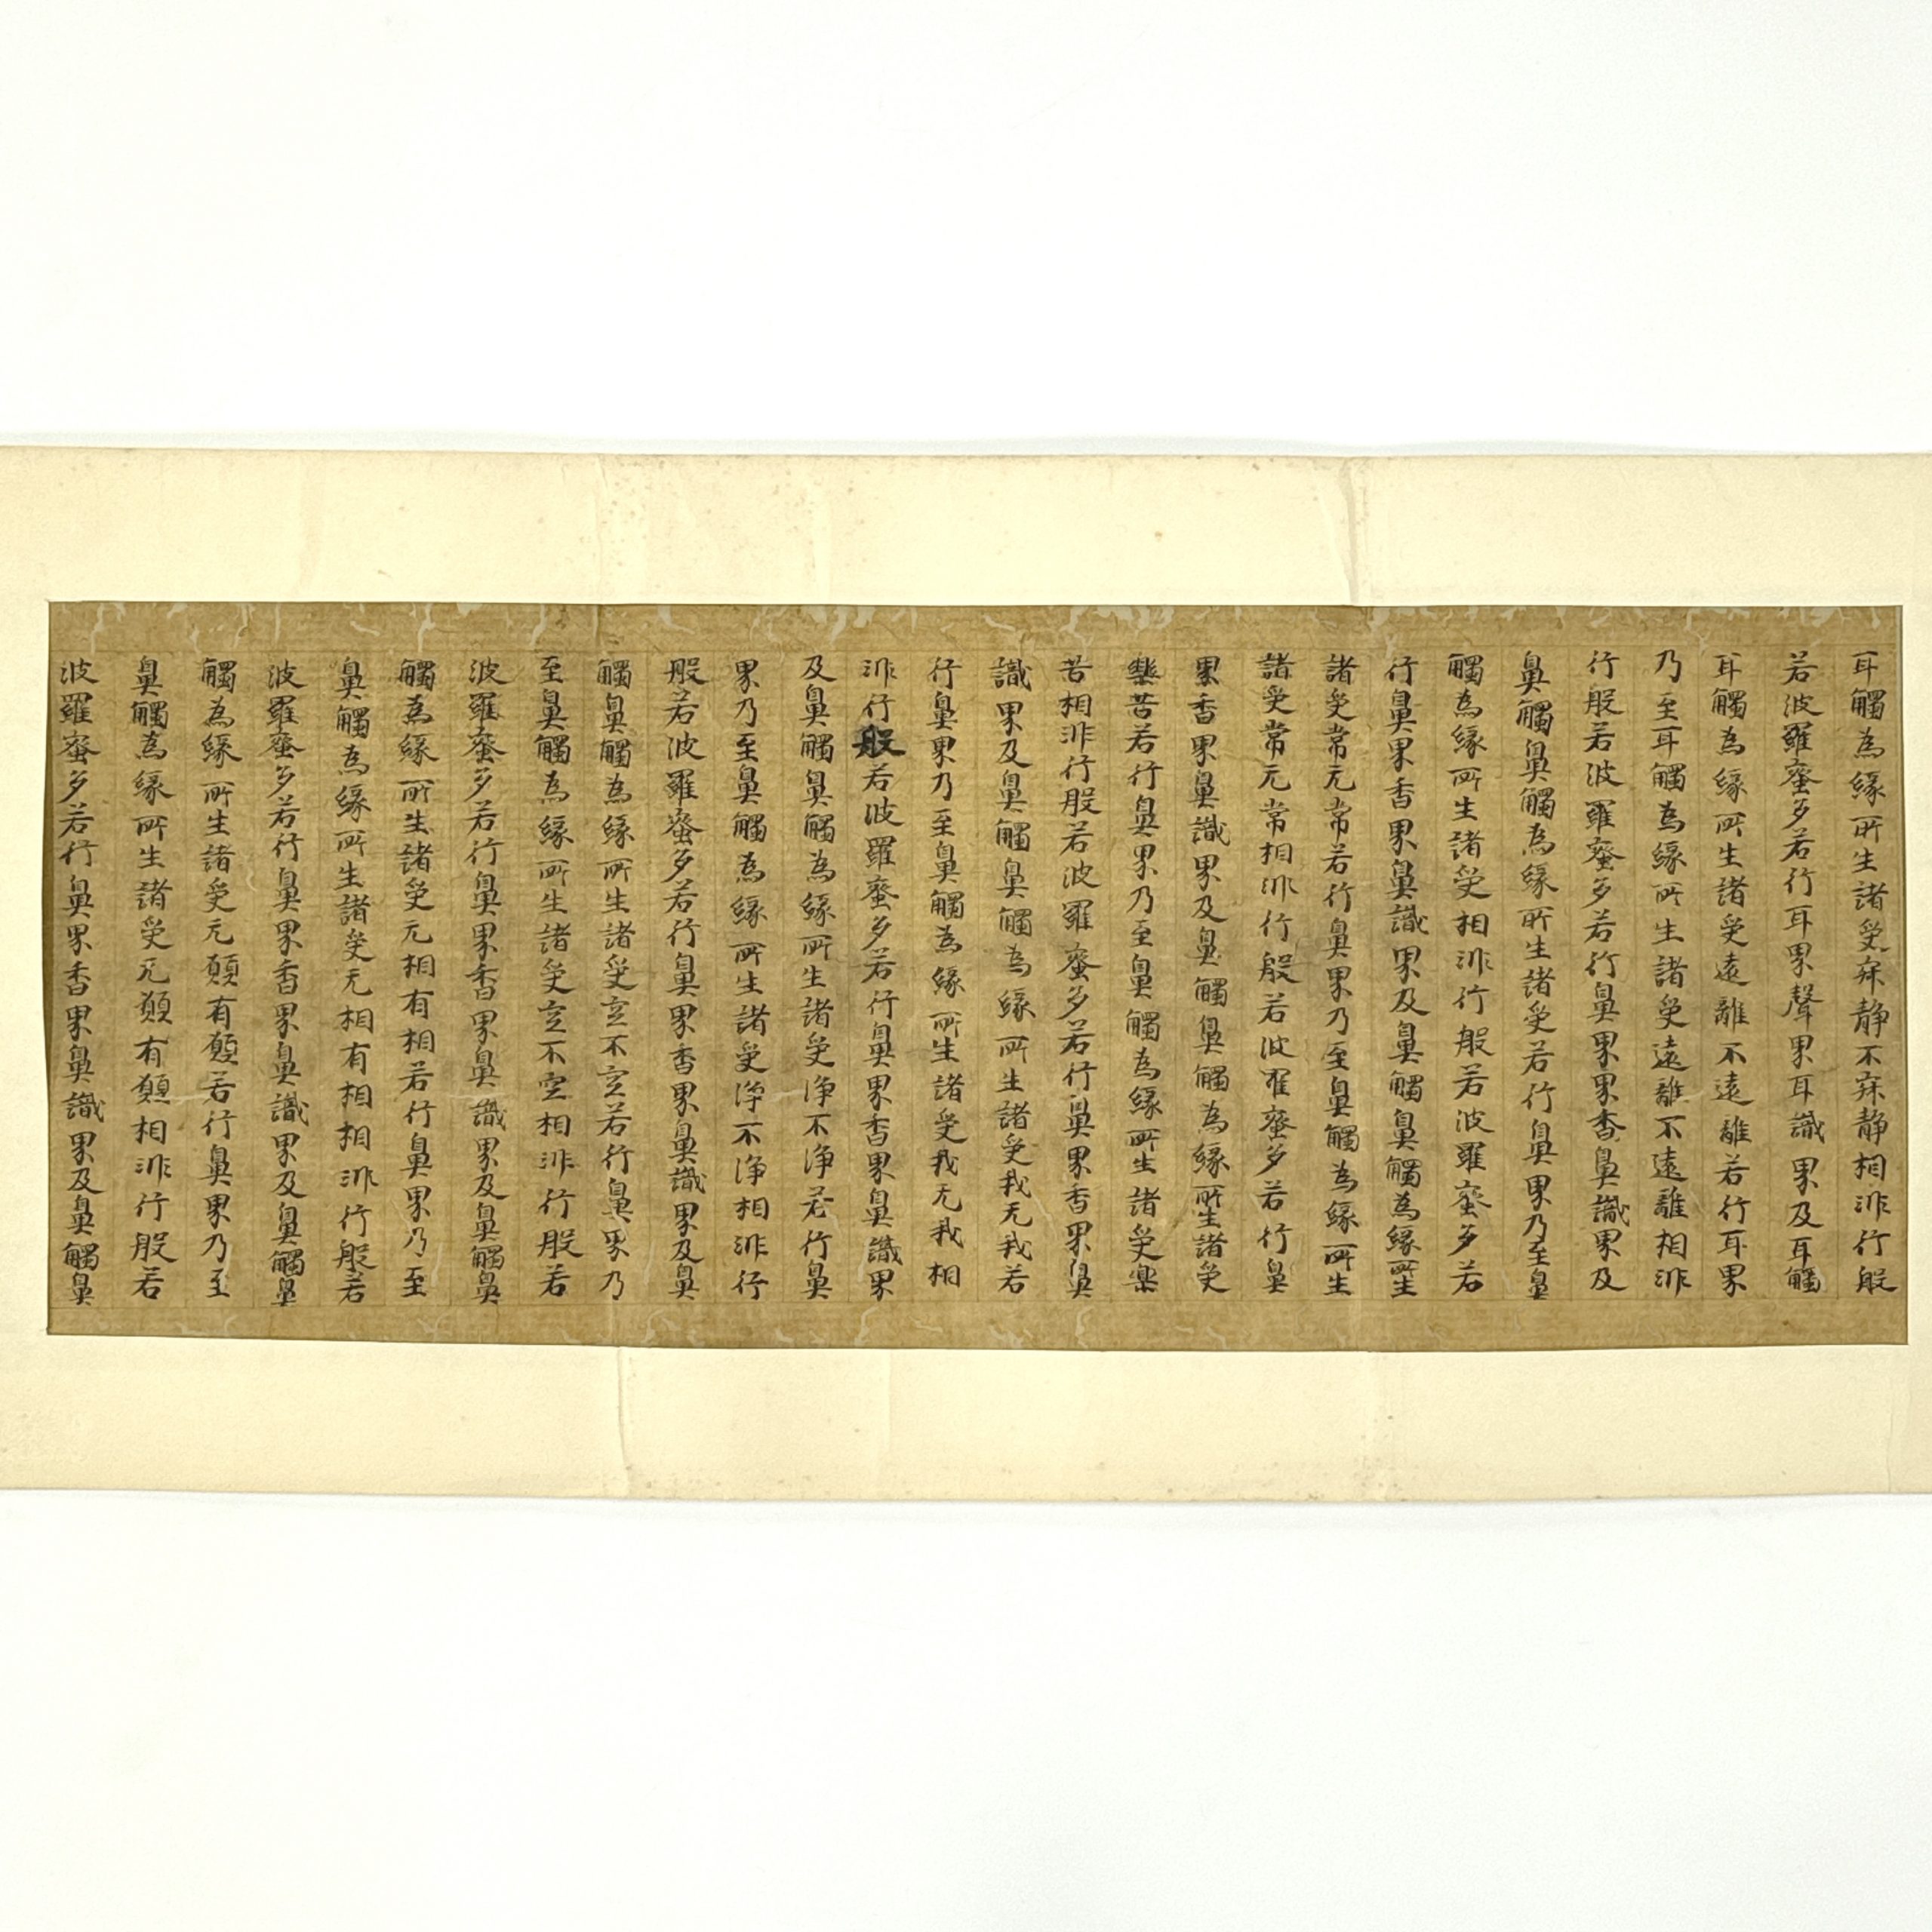 耳觸為緣所生諸受寂静不寂静相非行般
若波羅蜜多若行耳界聲界耳識界及耳觸
耳觸為緣所生諸受遠離不遠離若行耳界
乃至耳觸為緣所生諸受遠離不遠離相非
行般若波羅蜜多若行鼻界界香鼻識界及
鼻觸鼻觸為緣所生諸受若行鼻界乃至鼻
觸為緣所生諸受相非行般若波羅蜜多若
行鼻界香界鼻識界及鼻觸鼻觸為緣所生
諸受常无常若行鼻界乃至鼻觸為緣所生
諸受常无常相非行般若波羅蜜多若行鼻
界香界鼻識界及鼻觸鼻觸為緣所生諸受
樂苦若行鼻界乃至鼻觸為緣所生諸受樂
苦相非行般若波羅蜜多若行鼻界香界鼻
識界及鼻觸鼻觸為緣所生諸受我无我若
行鼻界乃至鼻觸為緣所生諸受我无我相
非行般若波羅蜜多若行鼻界香界鼻識界
及鼻觸鼻觸為緣所生諸受淨不淨若行鼻
界乃至鼻觸為緣所生諸受淨不淨相非行
般若波羅蜜多若行鼻界香界鼻識界及鼻
觸鼻觸為緣所生諸受空不空若行鼻界乃
至鼻觸為緣所生諸受空不空相非行般若
波羅蜜多若行鼻界香界鼻識界及鼻觸鼻
觸為緣所生諸受无相有相若行鼻界乃至
鼻觸為緣所生諸受无相有相相非行般若
波羅蜜多若行鼻界香界鼻識界及鼻觸鼻
觸為緣所生諸受无願有願若行鼻界乃至
鼻觸為緣所生諸受无願有願相非行般若
波羅蜜多若行鼻界香界鼻識界及鼻觸鼻